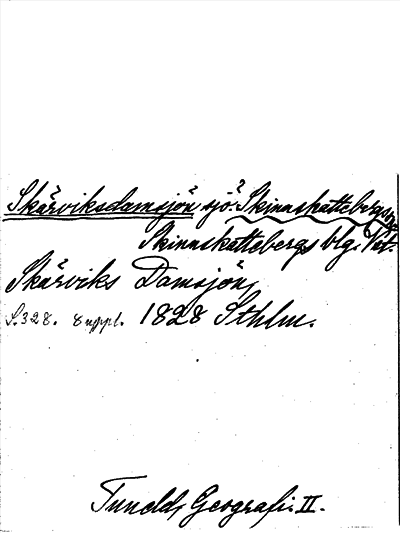 Skärviksdamsjön sjö? Skinnskattebergs sn
Skinnskattebergs blg. Vstm.
Skärviks Damsjön,
S. 328. suppl. 1828 Sthlm.
Tunelds Geografi. II.